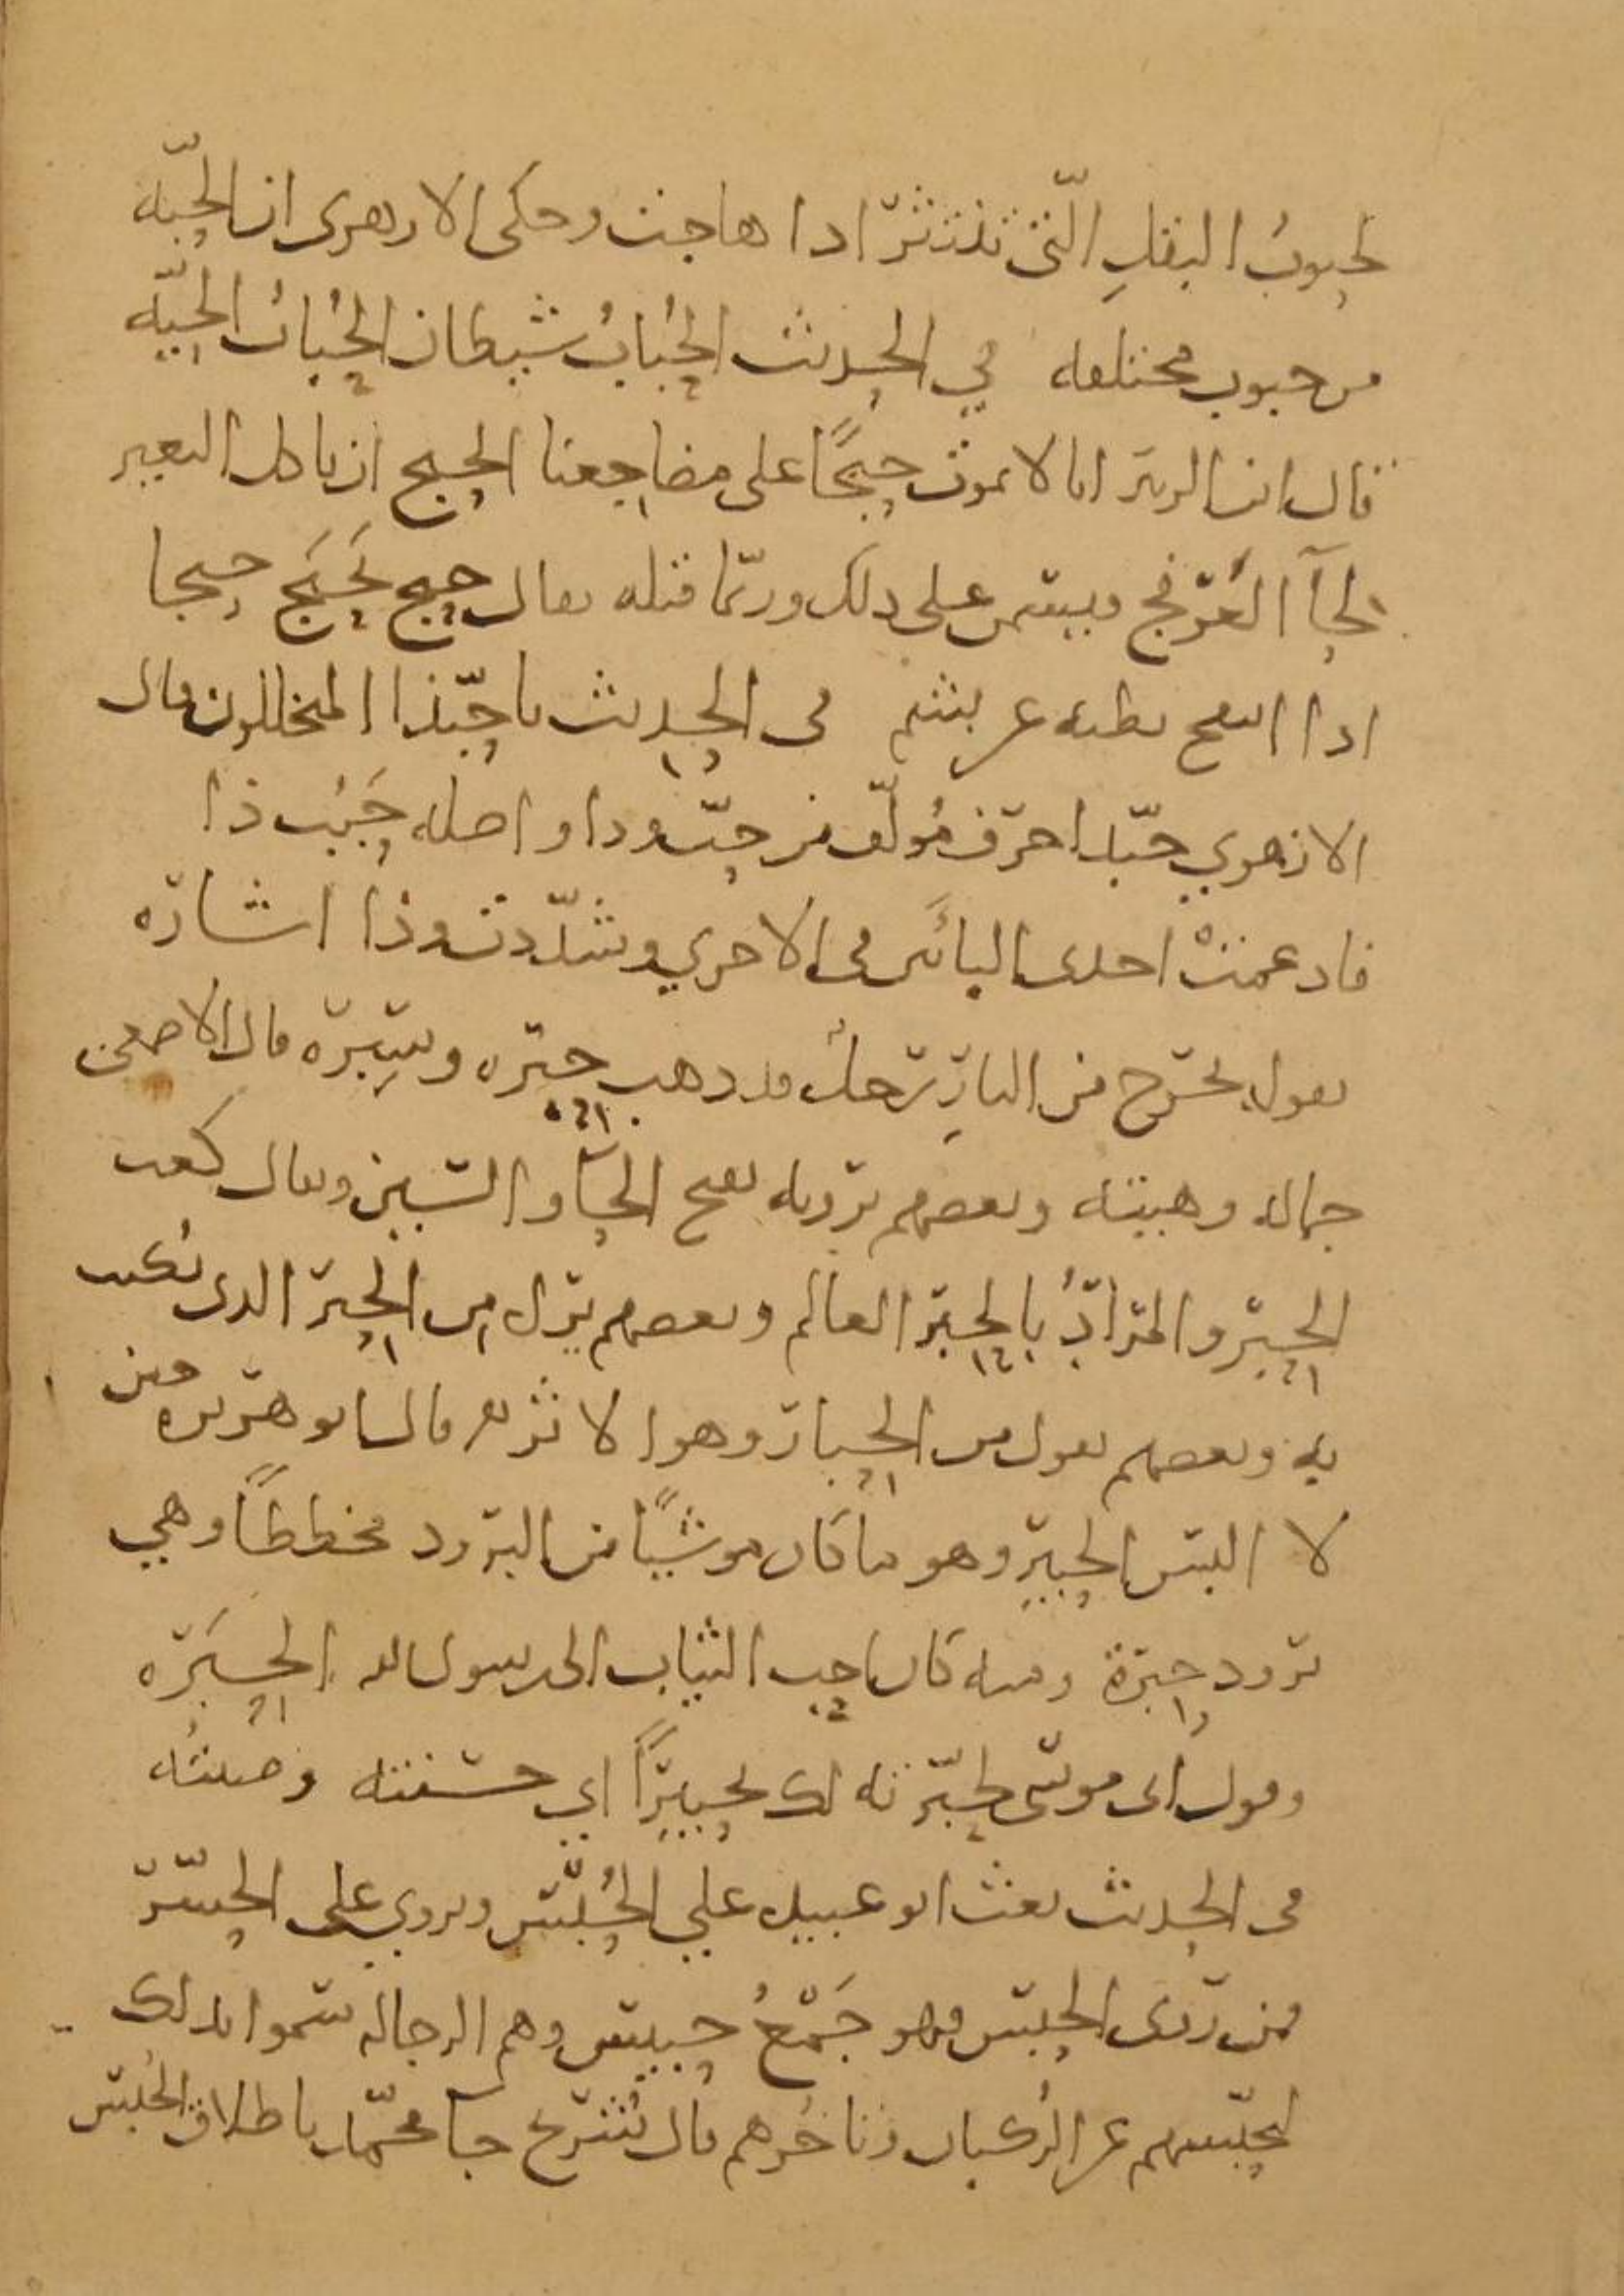 لحبوب البقل التي تنتثر اذا هاجت وحكى الازهرى ان الحبّه
من حبوب مختلفه في الحديث الحُبابُ شيطان الحُبابُ الحيّه
قال ابن الزبير انا لا نموت حبجًا على مضاجعنا الحبج ان ياكل البعير
لحآ العرفج ويسمن على ذلك وربّما قتله يقال حبج يَحبَج حبجا
اذا انتفح بطنه عن بشم في الحديث يا حبّذا المتخللون قال
الازهري حبّذا حرف مُولّف من حبّ وذا واصله حَبُب ذا
فادغمتْ احدى البائَين في الاخري وشدّدت وذا اشارَه
يقول يخرج من النارِ رجلٌ قد ذهب حبره وسِبره قال الاصمعى
جماله وهيئته وبعضهم يرويه بفتح الحآ والسين ويقال كعب
الحبر والمرادُ بالحبر العالم وبعضهم يقول من الحبر الذى يُكتب
به وبعضهم يقول من الحبار وهوا لاثر قال ابو هريره حين
لا البس الحبيرِ وهو ما كان موشيًا من البرود مخططًا وهي
برود حبرة ومنه كان احب الثياب الى رسول الله الحِبَرَه
وقول ابى موسى لحبّرته لك تحبيرًا اي حسّنته وزينتُه
في الحديث بعث ابو عبيده علي الحُبّس ويروي على الحسّر
فمن روى الحبس فهو جَمْعُ حبيس وهم الرجاله سموا بذلك
لتحبّسهم عن الركبان وتاخُرهم قال شُريح جا محمّد باطلاق الحُبس